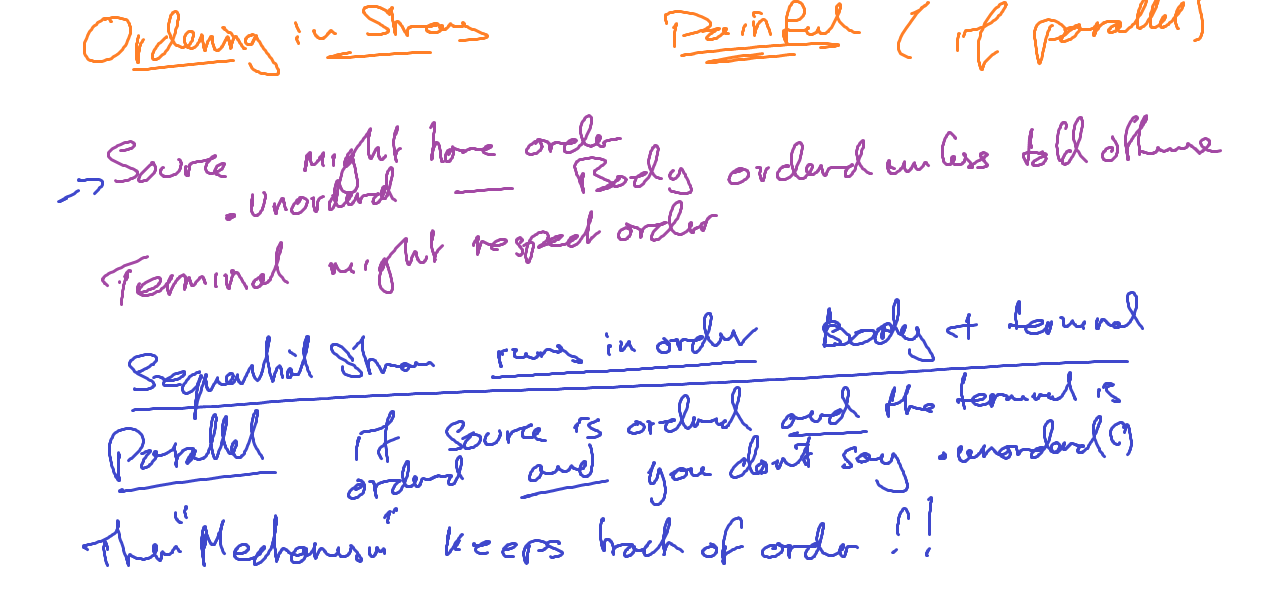 Ordering in Streams Painful (if parallel)
→ Source might have order
.unordered — Body ordered unless told otherwise
Terminal might respect order
Sequential Stream runs in order Body + terminal
Parallel if source is ordered and the terminal is
ordered and you don't say .unordered()
Then "Mechanism" keeps track of order !!